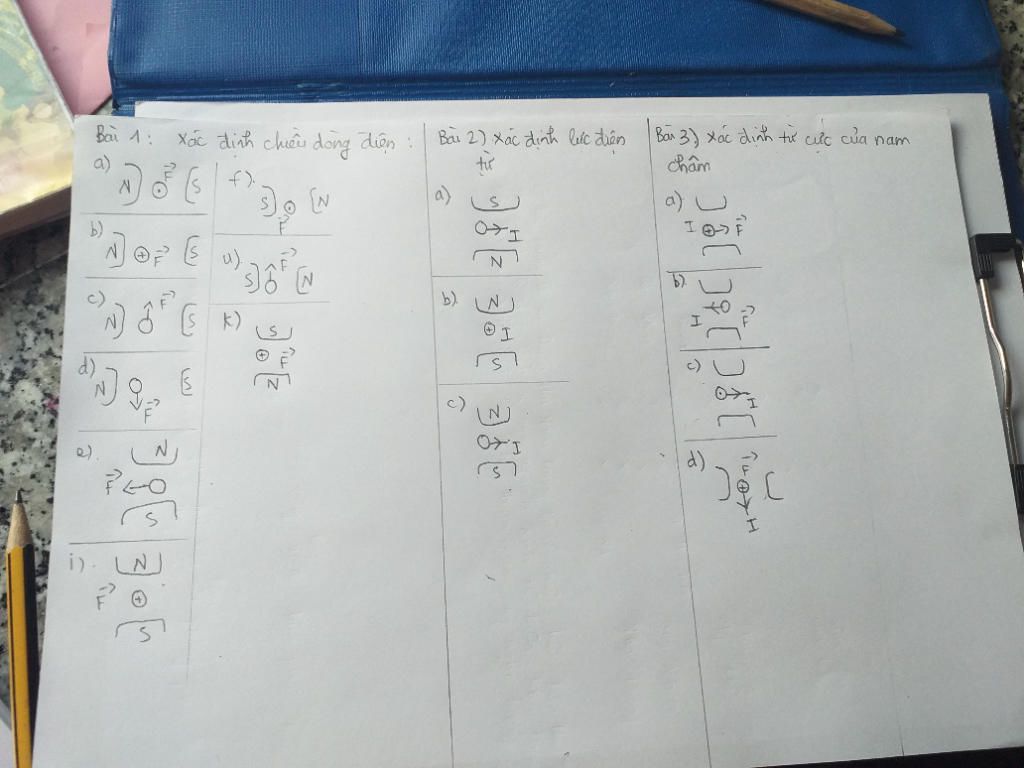 Bài 1: Xác định chiều dòng điện:
a) N F S
b) N F S
c) N F S
d) N F S
e). N
F
S
i). N
F
S
f). S N
F
u) S F N
k) S
F
N
Bài 2) Xác định lực điện
từ
a) S
I
N
b) N
I
S
c) N
I
S
Bài 3) Xác định từ cực của nam
châm
a)
I F
b)
I F
c)
I
d) F
I